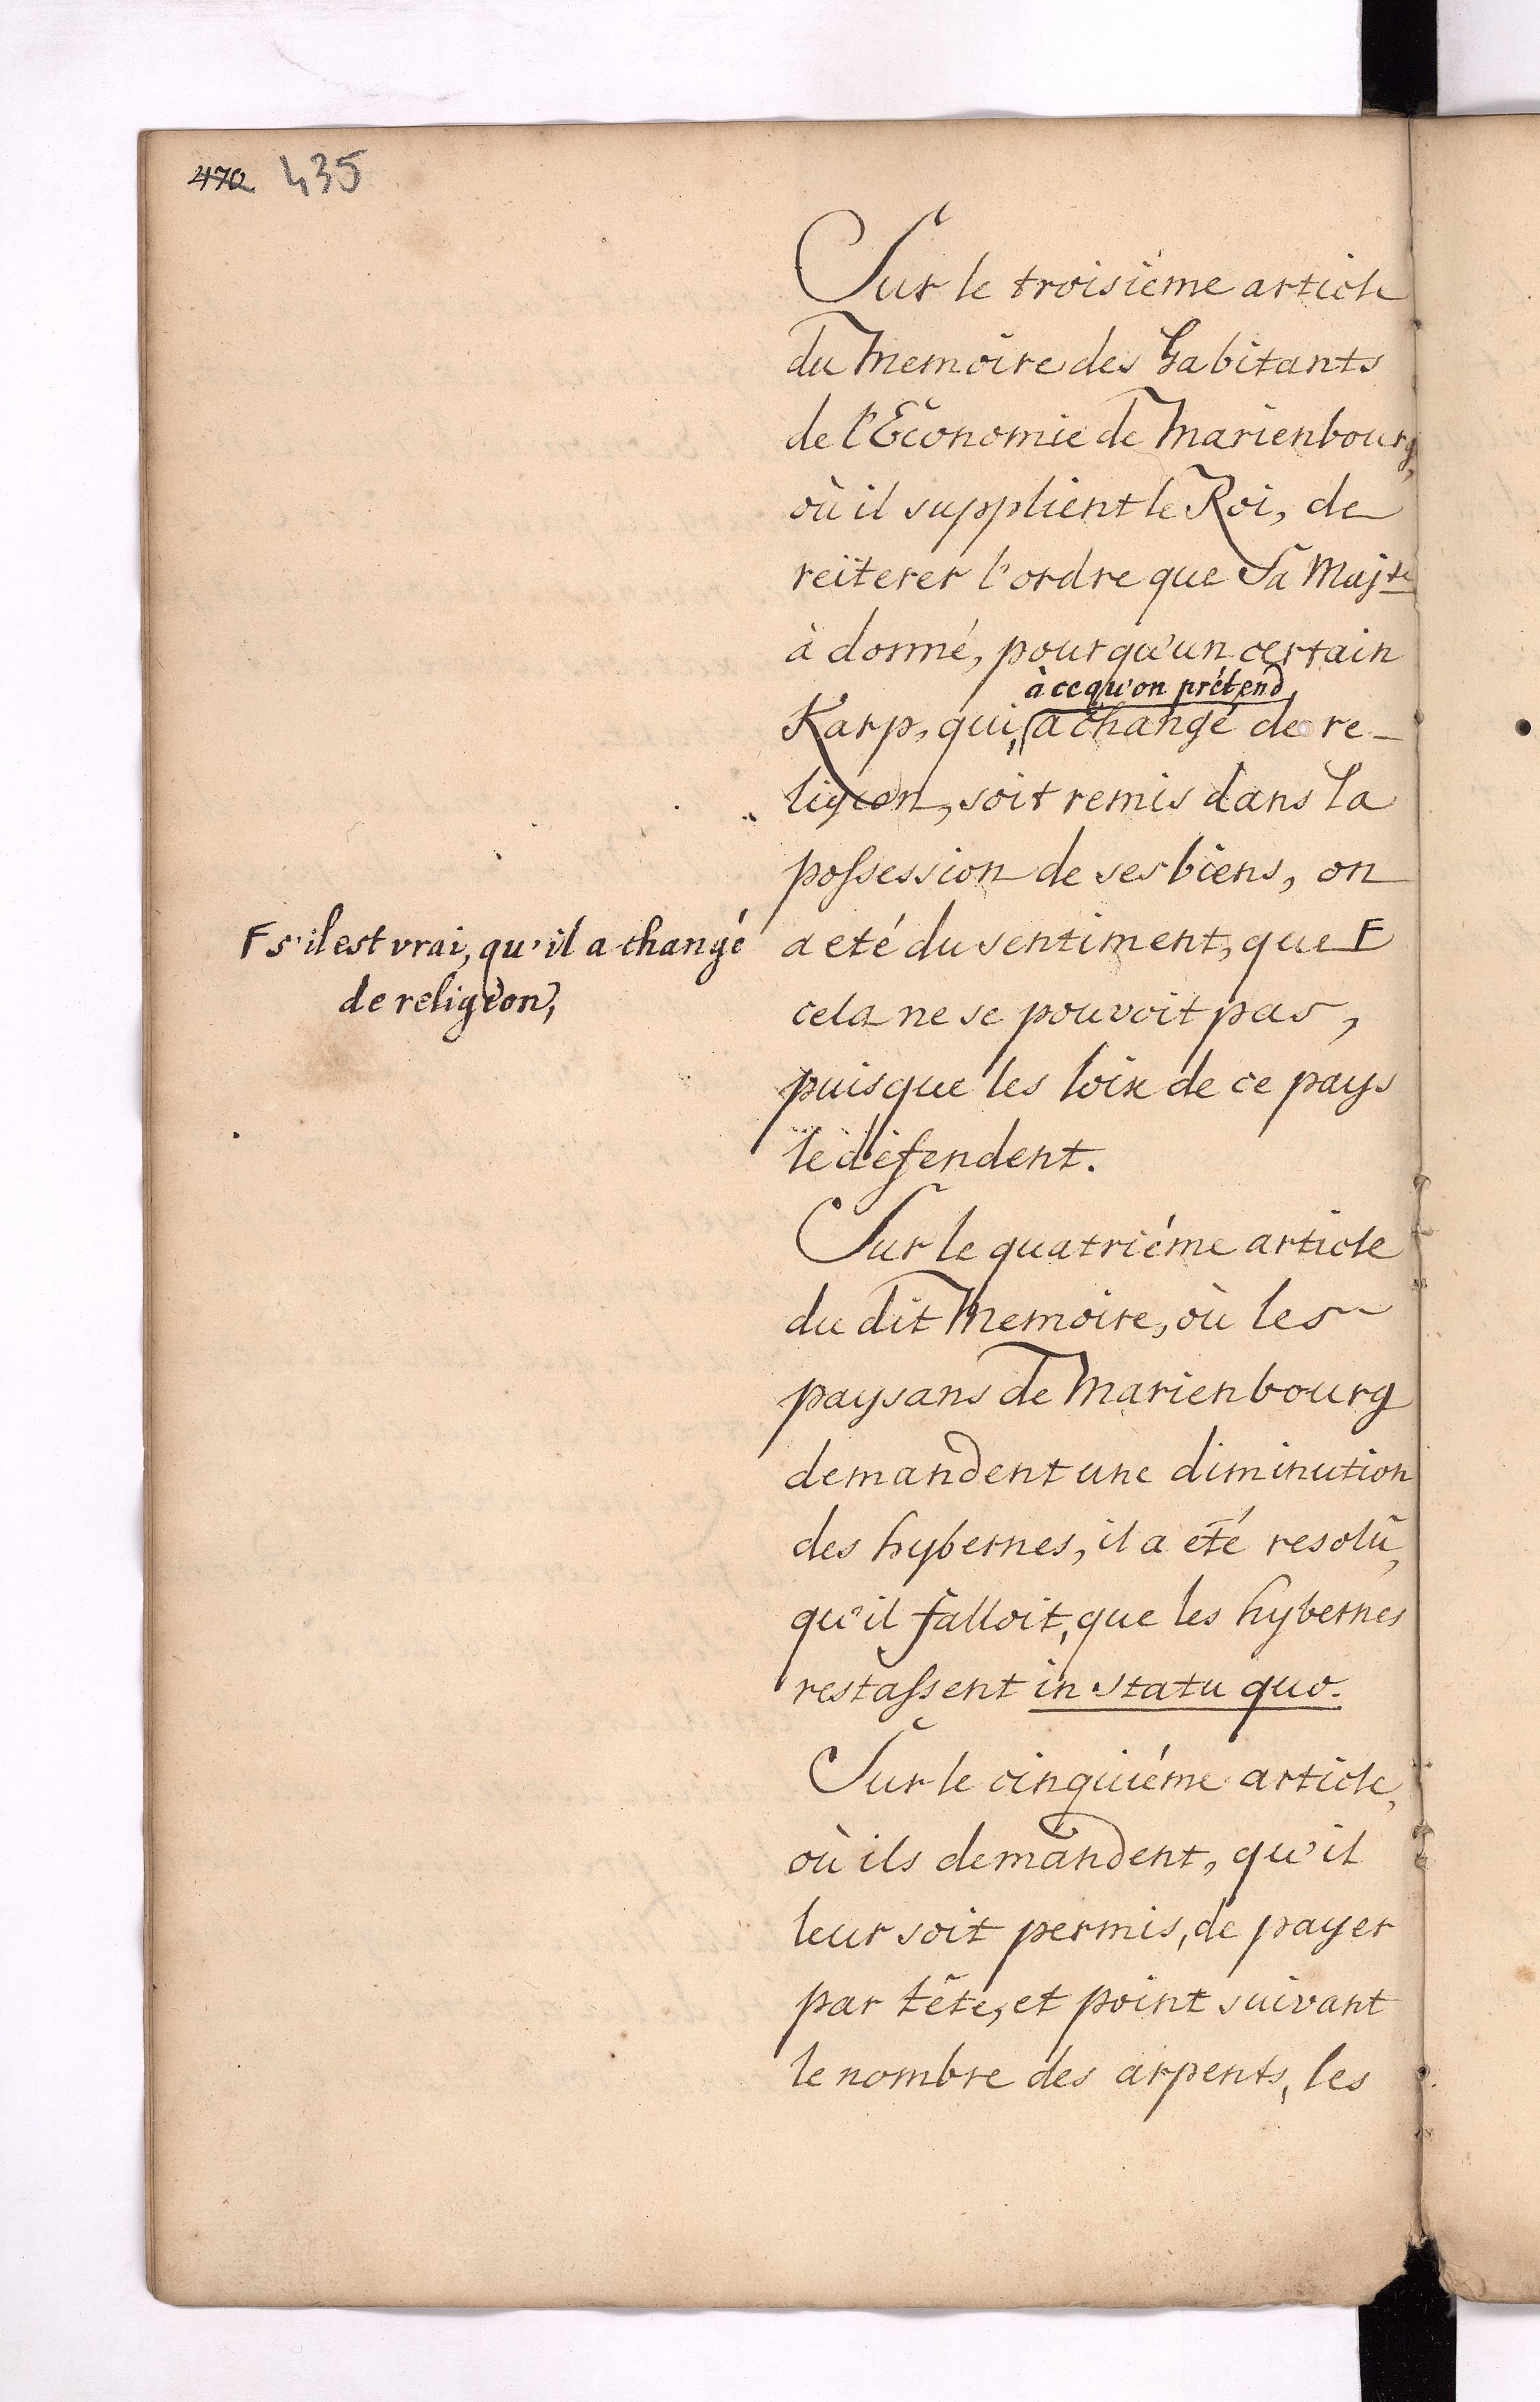 470 435
Sur le troisiéme article
du Memoire des habitants
de l'Economie de Marienbourg,
où il supplient le Roi, de
reïterer l'ordre que Sa Majté
à donné, pour qu'un certain
à ce qu'on prétend,
Karp, qui, a changé de re-
ligion, soit remis dans la
possession de ses biens, on
a eté du sentiment, que F
F s'il est vrai, qu'il a changé
de religion,
cela ne se pouvoit pas,
puisque les loix de ce pays
le défendent.
Sur le quatriéme article
du dit Memoire, où les
paysans de Marienbourg
demandent une diminution
des hybernes, il a été resolû,
qu'il falloit, que les hybernes
restassent in statu quo.
Sur le cinquiéme article,
où ils demandent, qu'il
leur soit permis, de payer
par tête, et point suivant
le nombre des arpents, les